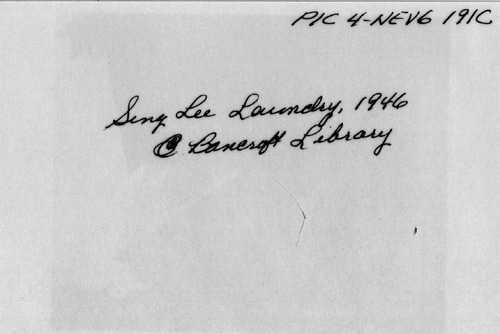 PIC 4-NEV6 191C
Sing Lee Laundry, 1946
© Bancroft Library